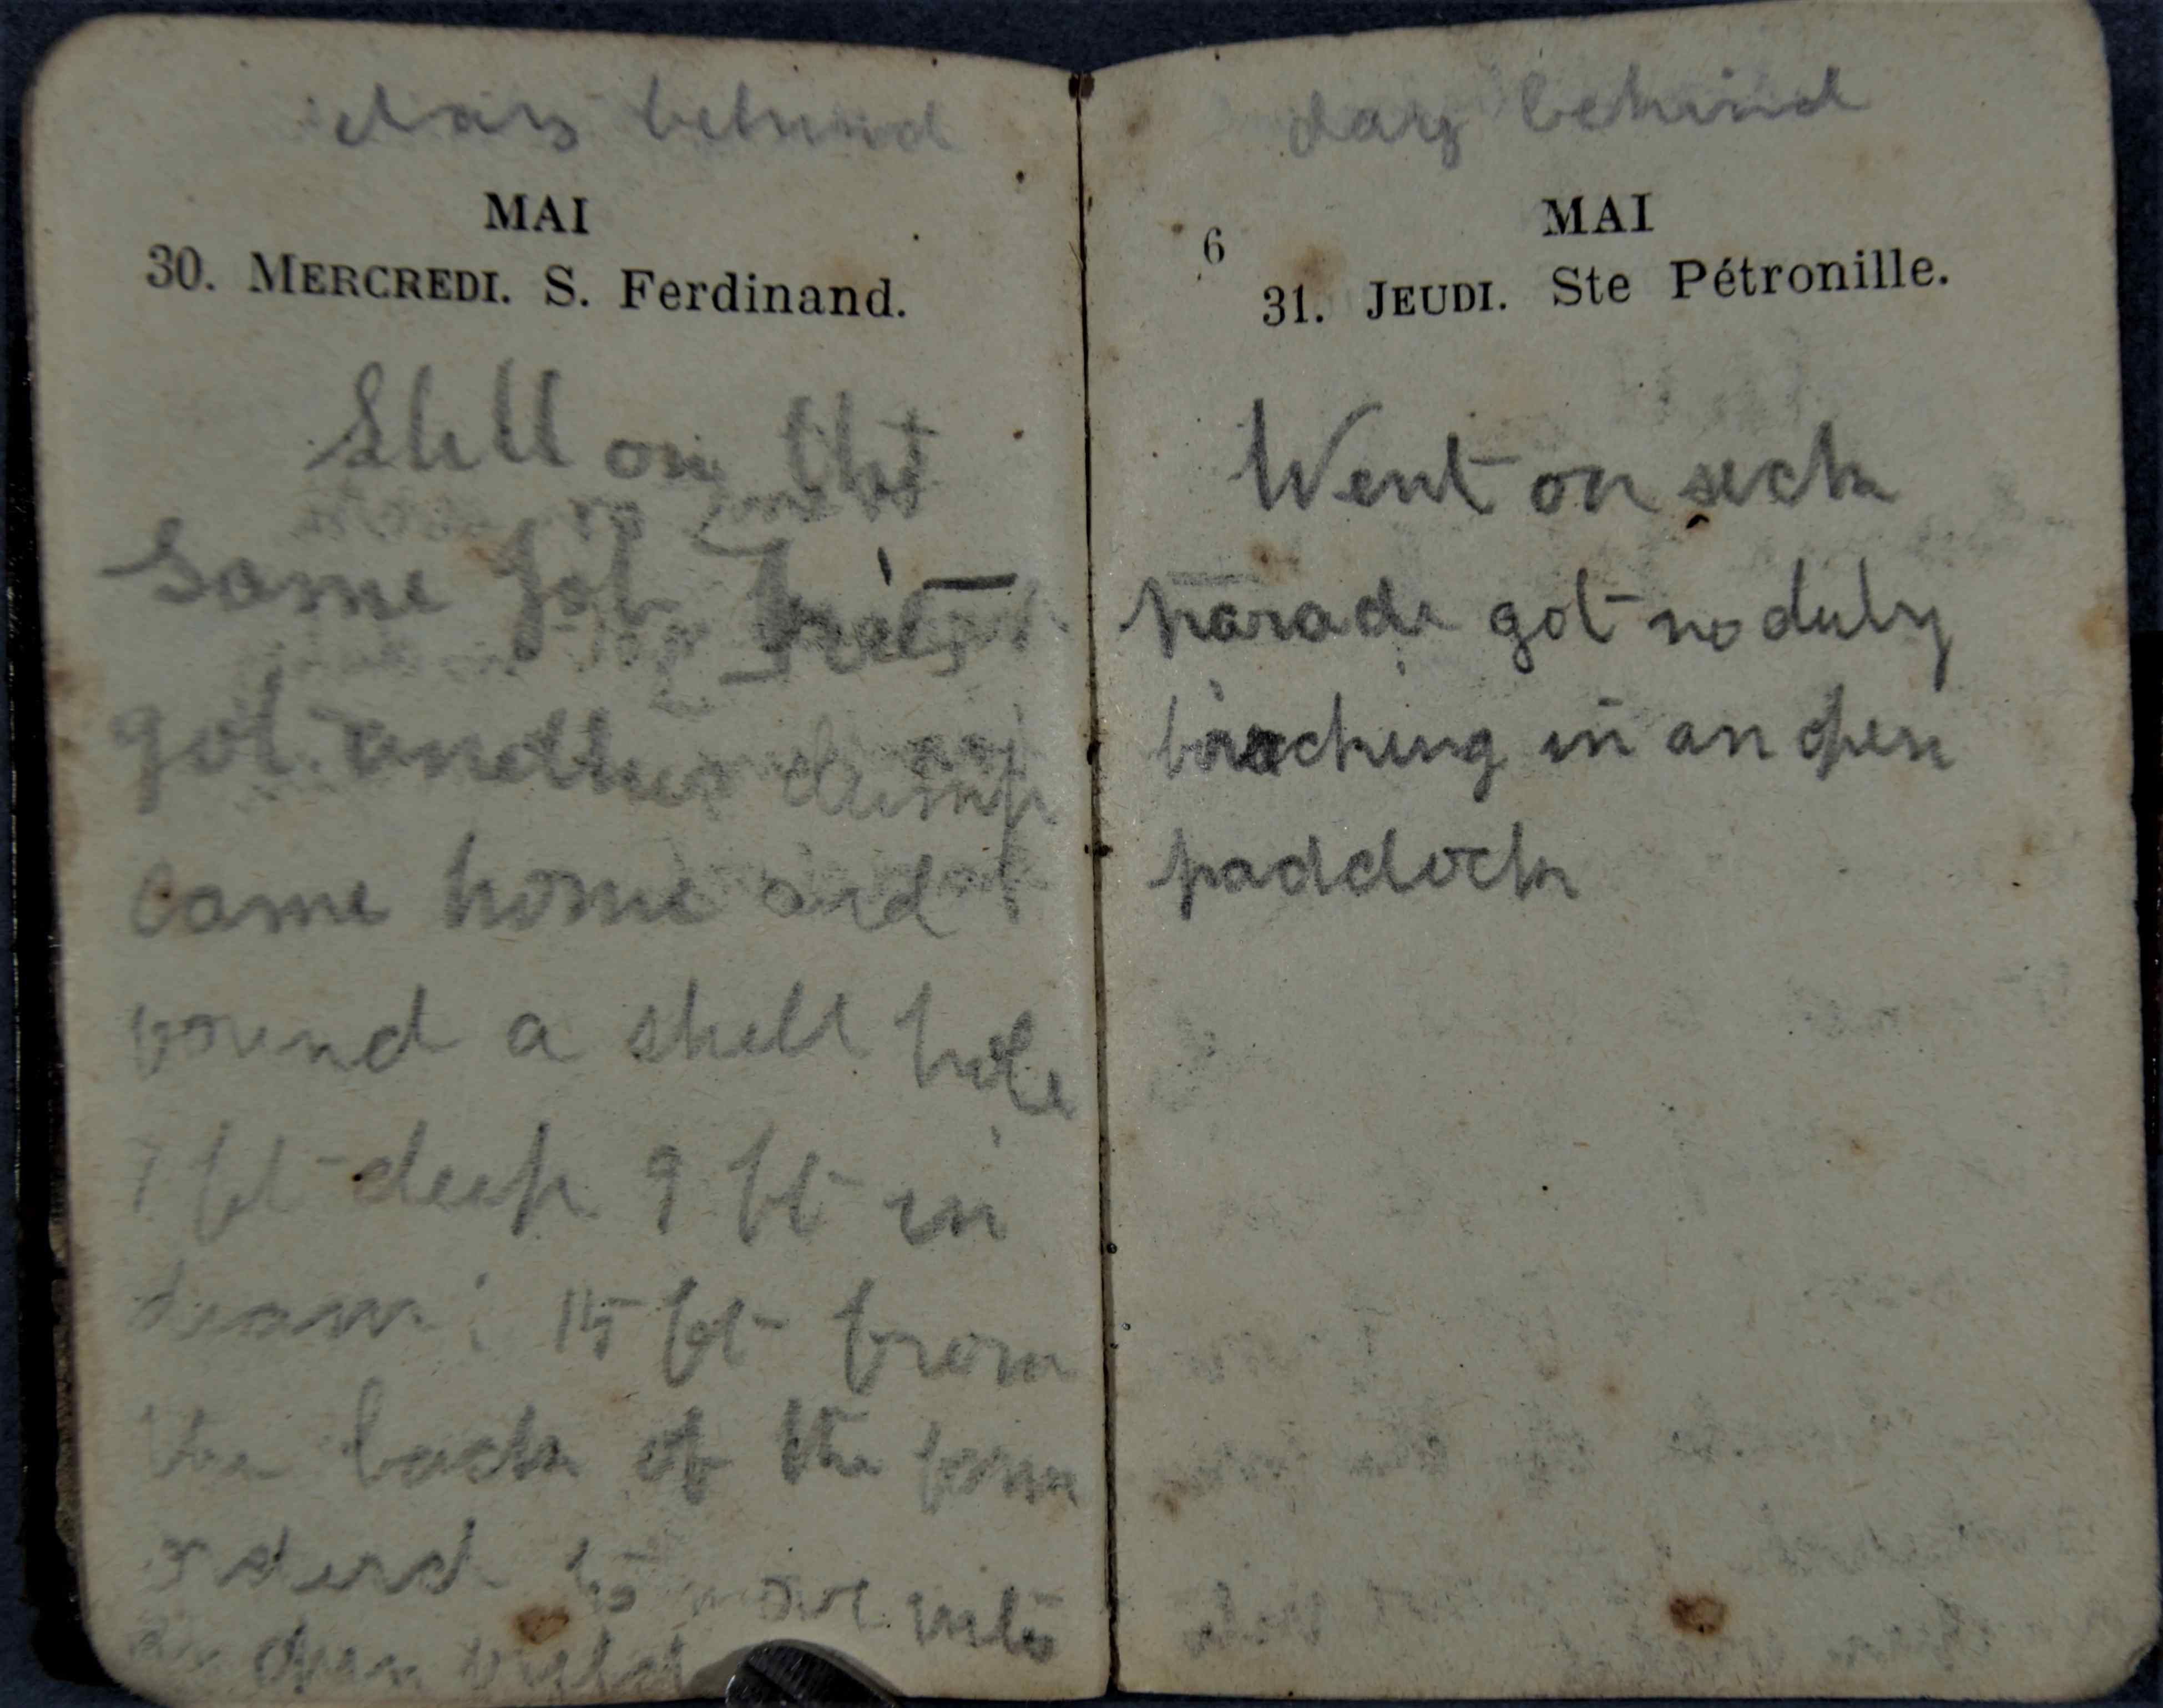 day behind
MAI
30. MERCREDI. S. Ferdinand.
Still on the
same job Fritz
got another dump
came home and
found a shell hole
7 ft deep 9 ft in
diam: 15 ft from
the back of the farm
orderd to move into
an open field
day behind
6
MAI
31. JEUDI. Ste Pétronille.
Went on sick
parade got no duty
in an open
paddock